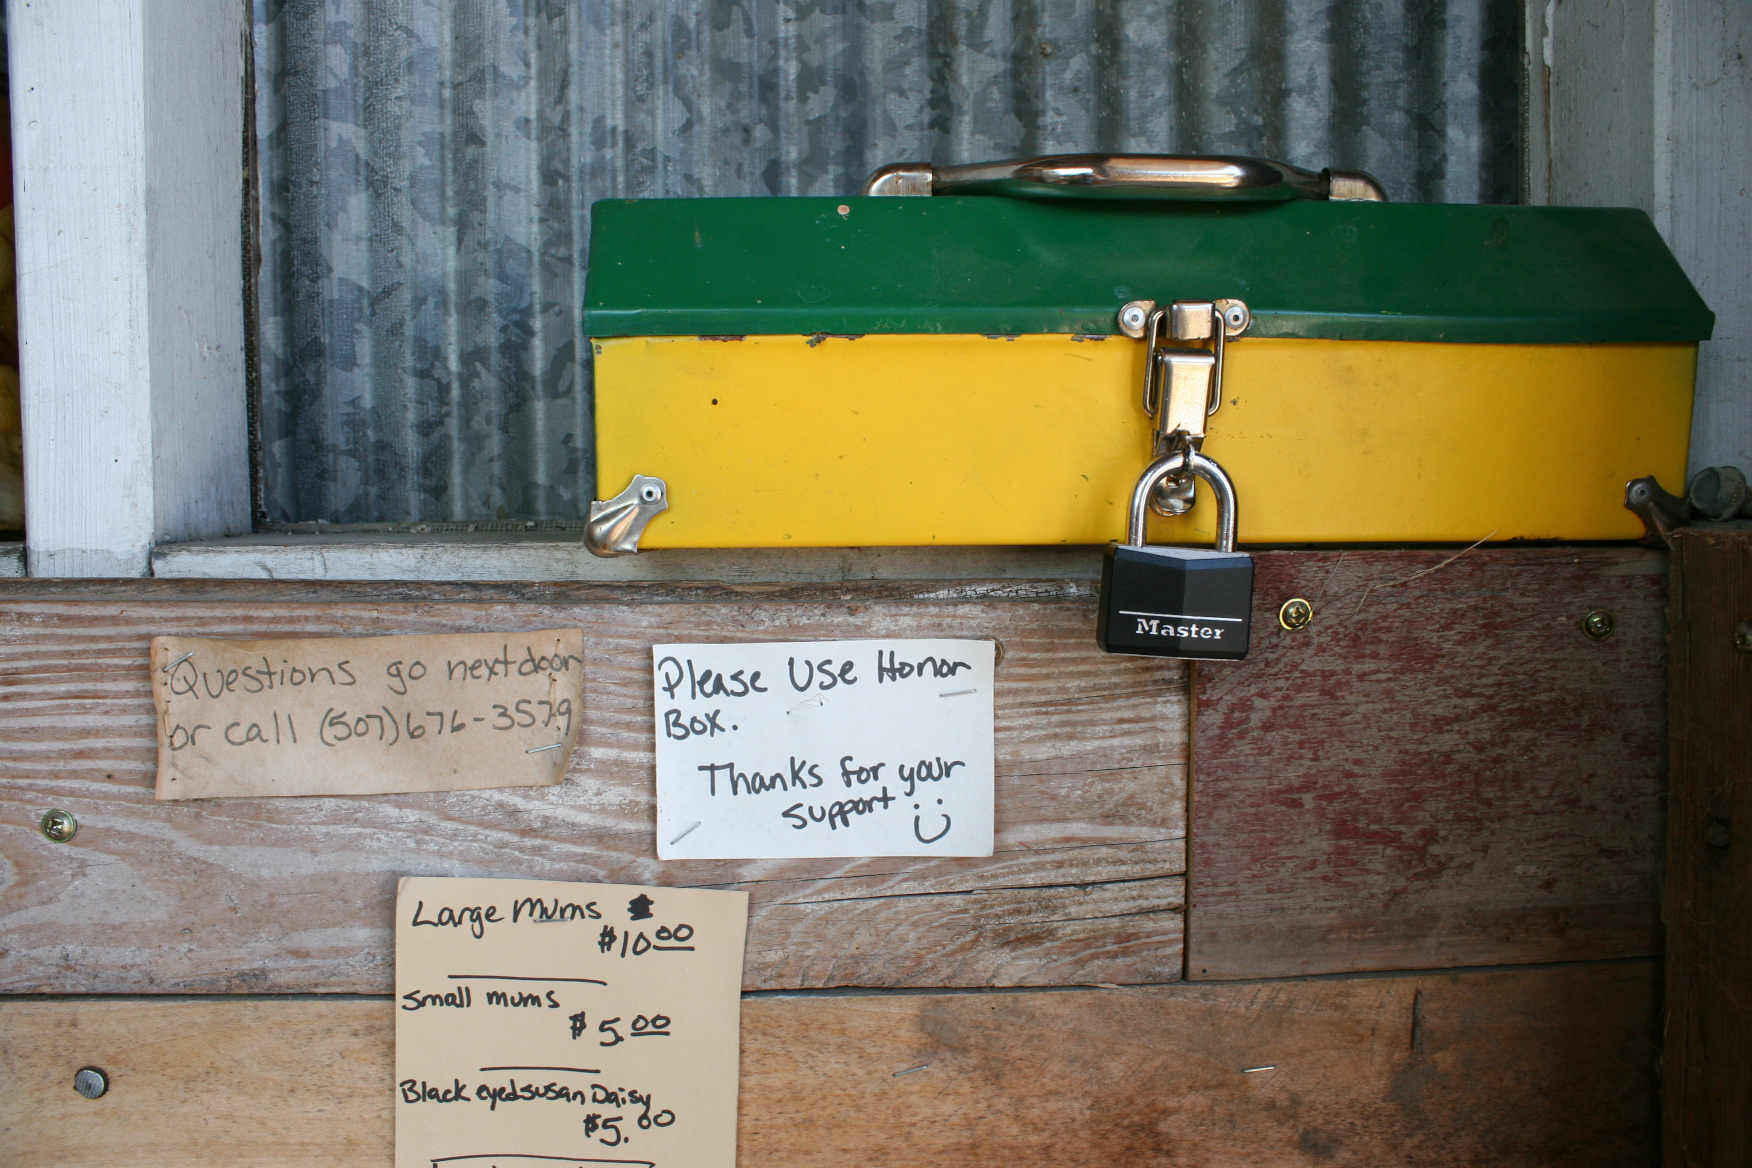 Master
Questions go next door
or call (507) 676-3579
Please Use Honor
Box.
Thanks for your
support
Large Mums
$10.00
Small mums
$5.00
Black eyed susan Daisy
$5.00